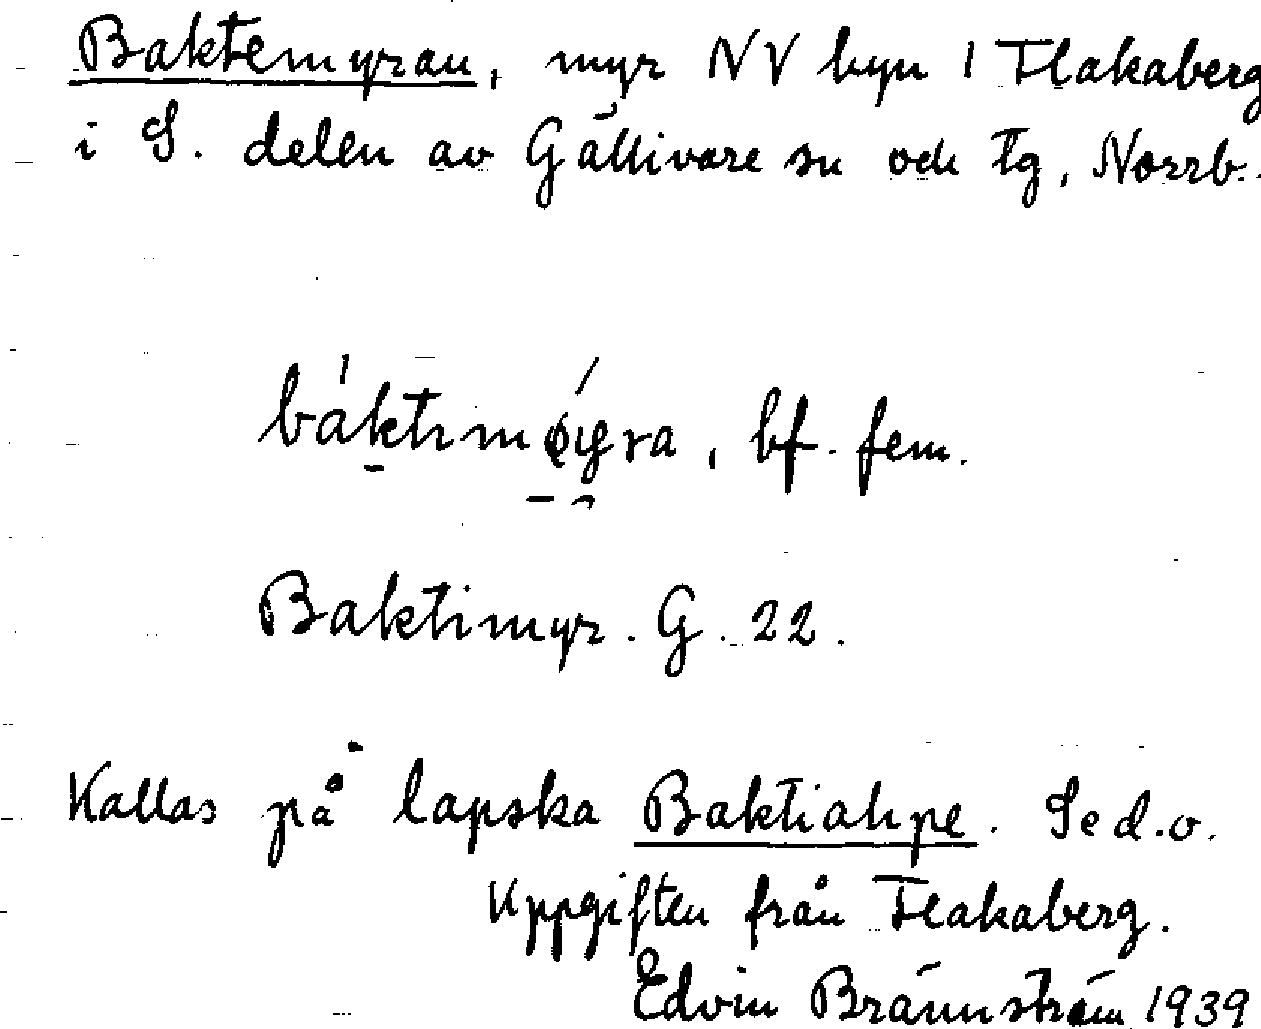 Baktemyran, myr NV byn 1 Flakaberg
i S. delen av Gällivare sn och tg, Norrb.
Baktimyr. G. 22.
Kallas på lapska Baktiahpe. Se d.o.
Uppgiften från Flakaberg.
Edvin Brännström 1939